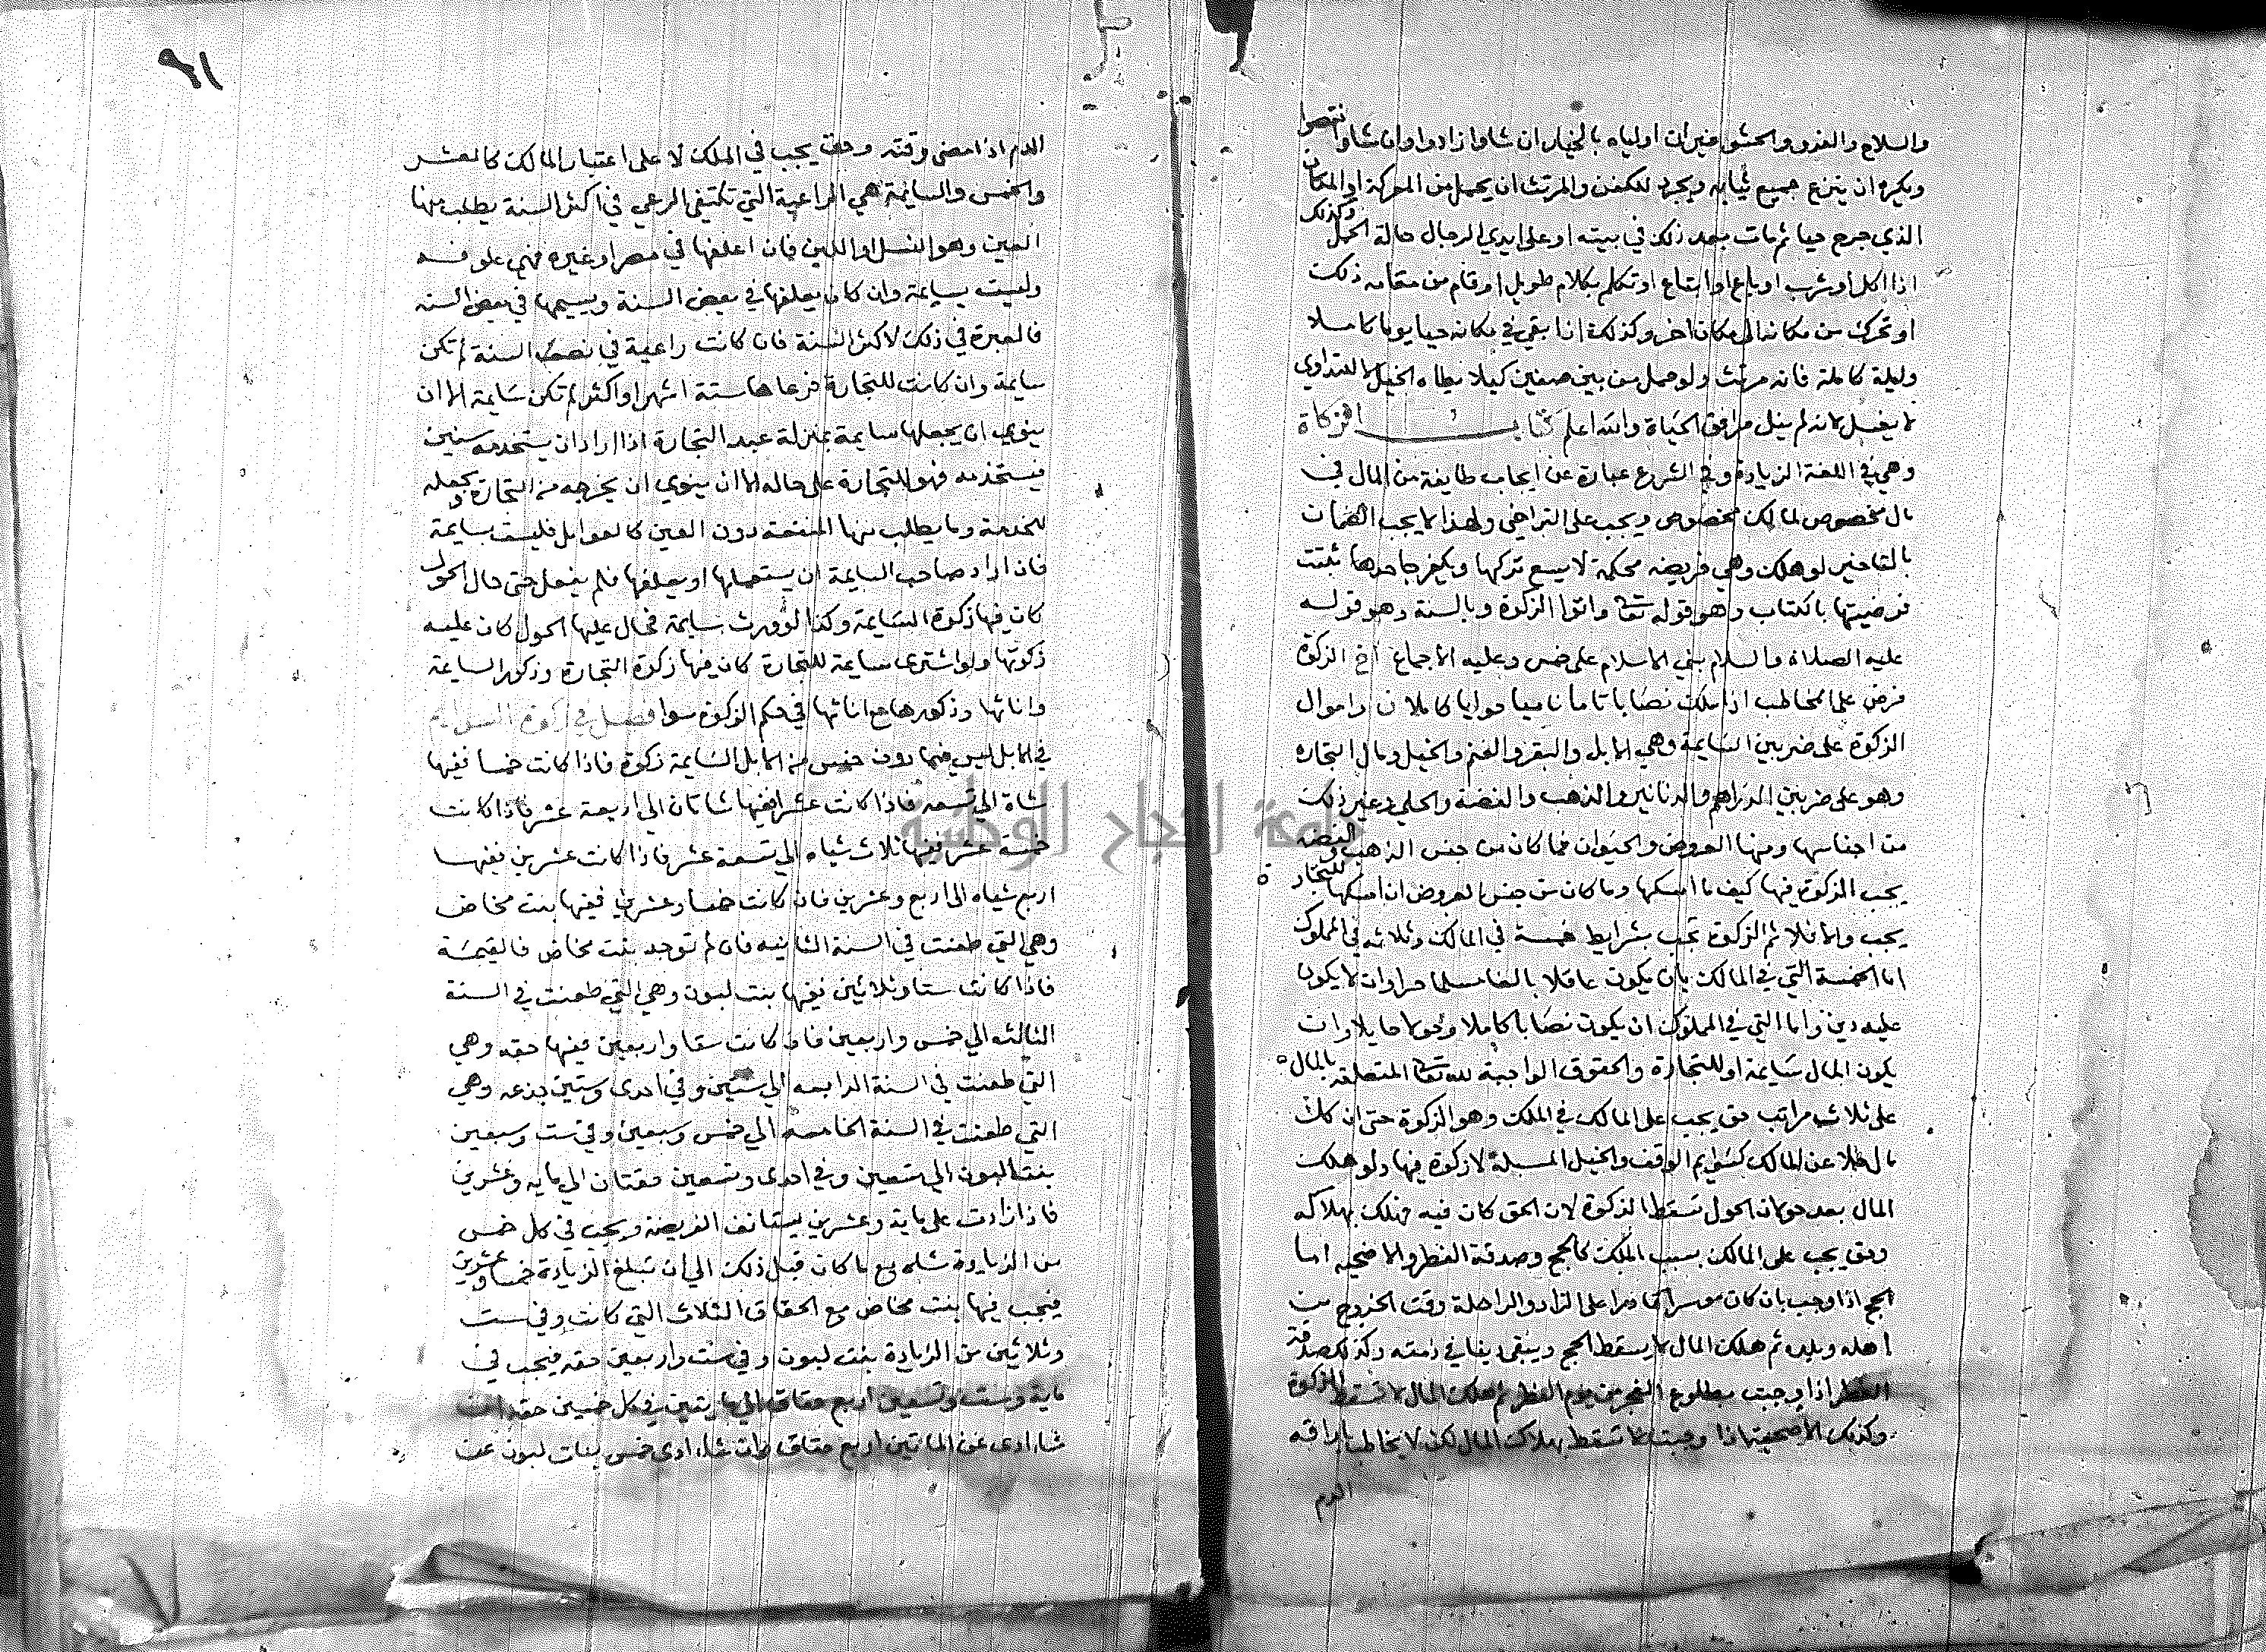 والسلاح والفرو والحشو غيران اولياه بالخيار ان شاوا زادوا وان شاوا نقصوا
ويكره ان ينزع جميع ثيابه ويجرد للكفن والمرتث ان يحمل من المعركة او المكان
الذي جرح حيا ثم مات بعد ذلك في بيته او على ايدي الرجال حالة الحمل وكذلك
اذا اكل او شرب او باع او ابتاع او تكلم بكلام طويل او قام من مقامه ذلك
او تحرك من مكانه الى مكان اخر وكذلك اذا بقي في مكانه حيا يوما كاملا
وليلة كاملة فانه مرتث ولو حمل من بين صفين كيلا يطاه الخيل لا للتداوي
لا يغسل لانه لم ينل مرافق الحياة والله اعلم كتاب الزكاة
وهي في اللغة الزيادة وفي الشرع عبارة عن ايجاب طايفة من المال في
مال مخصوص لمالك مخصوص ويجب على التراخي ولهذا لا يجب الضمان
بالتاخير لو هلك وهي فريضه محكمة لا يسع تركها ويكفر جاحدها ثبتت
فرضيتها بالكتاب وهو قوله تعا واتوا الزكوة وبالسنة وهو قوله
عليه الصلاة والسلام بني الاسلام على خمس وعليه الاجماع الزكوة
فرض على المخاطب اذا ملك نصابا تاما ناميا حوليا كاملا واموال
الزكوة على ضربين السايمة وهي الابل والبقر والغنم والخيل ومال التجاره
وهو على ضربين الدراهم والدنانير والذهب والفضة والحلي وغير ذلك
من اجناسها ومنها العروض والحيوان فما كان من جنس الذهب والفضه
يجب الزكوة فيها كيف ما امسكها وما كان من جنس العروض ان امسكها للتجار ة
يجب والا فلا ثم الزكوة تجب بشرايط خمسة في المالك وثلاثه في المملوك
اما الخمسة التي في المالك بان يكون عاقلا بالغا مسلما حرا وان لا يكون
عليه دين واما التي في المملوك ان يكون نصابا كاملا وحولا حايلا وان
يكون المال سايمة او للتجارة والحقوق الواجبة لله تعا المتعلقه بالمال
على ثلاث مراتب حق يجب على المالك في الملك وهو الزكوة حتى ان كل
مال خلا عن المالك كسوايم الوقف والخيل المسبلة لا زكوة فيها ولو هلك
المال بعد حولان الحول تسقط الزكوة لان الحق كان فيه فهلك بهلاكه
وحق يجب على المالك بسبب الملك كالحج وصدقة الفطر والاضحيه اما
الحج اذا وجب بان كان موسرا قادرا على الزاد والراحلة وقت الخروج من
اهله وبلده ثم هلك المال لا يسقط الحج ويبقى دينا في ذمته وكذلك صدقة
الفطر اذا وجبت بطلوع الفجر من يوم الفطر ثم هلك المال لا تسقط الزكوة
وكذلك الاضحية اذا وجبت لا تسقط بهلاك المال لكن لا يخاطب باراقه
الدم
٩١
الدم اذا مضى وقته وحق يجب في الملك لا على اعتبار المالك كالعشر
والخمس والسايمة هي الراعية التي تكتفي الرعي في اكثر السنة يطلب منها
العين وهو النسل واللبن فان اعلفها في مصر او غيره فهي علوفه
وليست بسايمة وان كان يعلفها في بعض السنة ويسيمها في بعض السنه
فالعبرة في ذلك لاكثر السنة فان كانت راعية في نصف السنة لم تكن
سايمة وان كانت للتجارة فرعاها ستة اشهر او اكثر لم تكن سايمة الا ان
ينوي ان يجعلها سايمة بمنزلة عبد التجارة اذا اراد ان يستخدمه سنين
فيستخدمه فهو للتجارة على حاله الا ان ينوي ان يخرجه من التجارة ويجعله
للخدمة وما يطلب منها المنفعة دون العين كالعوامل فليست بسايمة
فان اراد صاحب السايمة ان يستعملها او يعلفها فلم يفعل حتى حال الحول
كان فيها زكوة السايمة وكذا لو ورث سايمة فحال عليها الحول كان عليه
زكوتها ولو اشترى سايمة للتجارة كان فيها زكوة التجارة وذكور السايمة
واناثها وذكورها مع اناثها في حكم الزكوة سوا فصل في زكوة السوايم
في الابل ليس فيما دون خمس من الابل السايمة زكوة فاذا كانت خمسا ففيها
شاة الى تسعه فاذا كانت عشرا ففيها شاتان الى اربعة عشر فاذا كانت
خمسة عشر ففيها ثلاث شياه الى تسعة عشر فاذا كانت عشرين ففيها
اربع شياه الى اربع وعشرين فان كانت خمسا وعشرين ففيها بنت مخاض
وهي التي طعنت في السنة الثانيه فان لم توجد بنت مخاض فالقيمة
فاذا كانت ستا وثلاثين ففيها بنت لبون وهي التي طعنت في السنة
الثالثه الى خمس واربعين فان كانت ستا واربعين ففيها حقه وهي
التي طعنت في السنة الرابعه الى ستين وفي احدى وستين جذعه وهي
التي طعنت في السنة الخامسه الى خمس وسبعين وفي ست وسبعين
بنتا لبون الى تسعين وفي احدى وتسعين حقتان الى مايه وعشرين
فاذا زادت على ماية وعشرين يستانف الفريضة ويجب في كل خمس
من الزيادة شاه مع ما كان قبل ذلك الى ان تبلغ الزيادة خمسا وعشرين
فيجب فيها بنت مخاض مع الحقاق الثلاث التي كانت وفي ست
وثلاثين من الزيادة بنت لبون وفي ست واربعين حقه فيجب في
ماية وست وتسعين اربع حقاق الى مايتين في كل خمسين حقه ان
شا ادى عن الماتين اربع حقاق وان شا ادى خمس بنات لبون عن
جامعة النجاح الوطنية